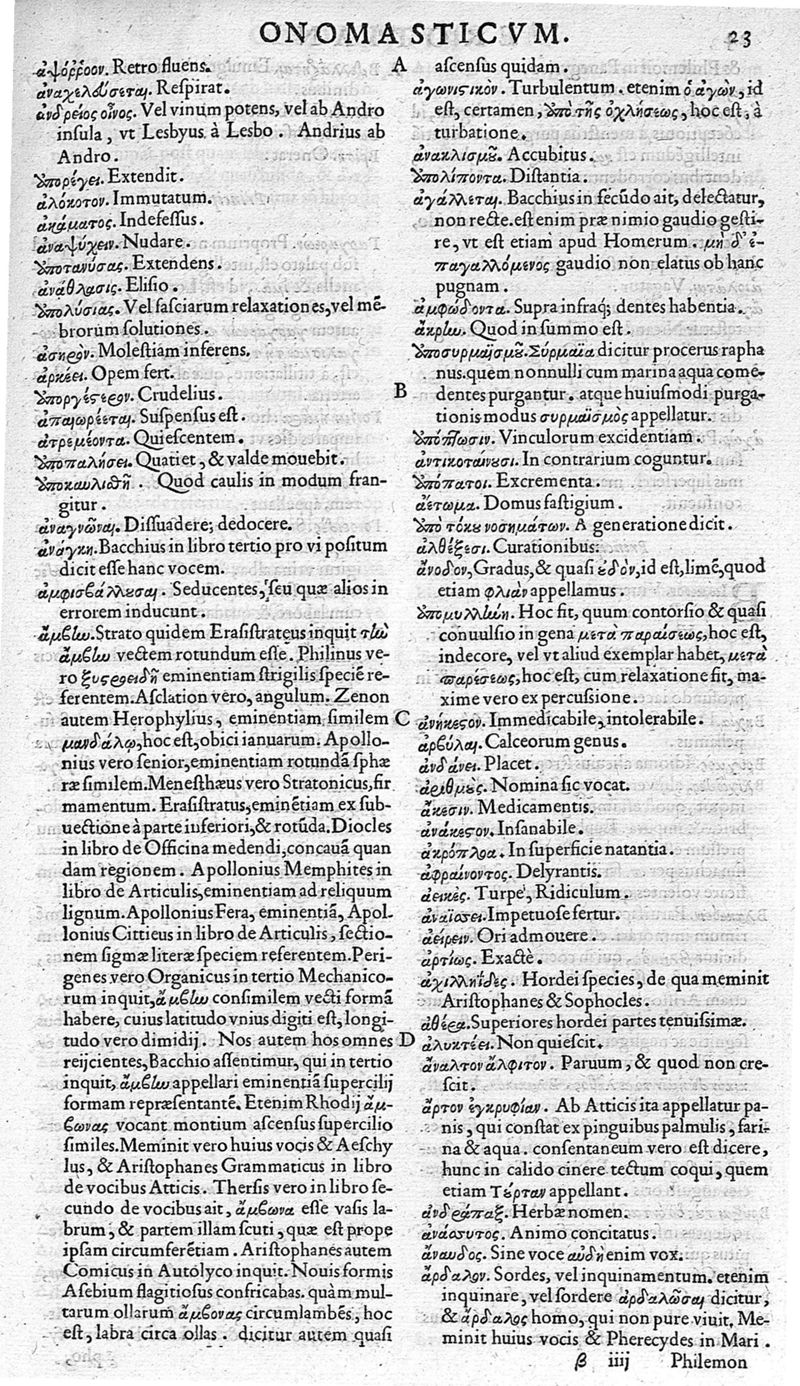 ONOMASTICVM. 23
ἀψόῤῥοον. Retro fluens.
ἀναχελύσεται. Respirat.
ἀνδρεῖος οἶνος. Vel vinum potens, vel ab Andro
insula, vt Lesbyus à Lesbo. Andrius ab
Andro.
ὑπορέγει. Extendit.
ἀλόκοτον. Immutatum.
ἀκάματος. Indefessus.
ἀναψύχειν. Nudare.
ὑποτανύσας. Extendens.
ἀνάθλασις. Elisio.
ὑπολύσιας. Vel fasciarum relaxationes, vel mē-
brorum solutiones.
ἀσηρὸν. Molestiam inferens.
ἀρκέει. Opem fert.
ὑποργέστερον. Crudelius.
ἀπαιωρέεται. Suspensus est.
ἀτρεμέοντα. Quiescentem.
ὑποπαλήσει. Quatiet, & valde mouebit.
ὑποκαυλισθῆ. Quod caulis in modum fran-
gitur.
ἀναγνῶναι. Dissuadere, dedocere.
ἀνάγκη. Bacchius in libro tertio pro vi positum
dicit esse hanc vocem.
ἀμφισβάλλουσαι. Seducentes, seu quæ alios in
errorem inducunt.
ἄμβην. Strato quidem Erasistrateus inquit τὴν
ἄμβην vectem rotundum esse. Philinus ve-
ro ξυστροειδῆ eminentiam strigilis speciē re-
ferentem. Asclation vero, angulum. Zenon
autem Herophylius, eminentiam similem
μανδάλῳ, hoc est, obici ianuarum. Apollo-
nius vero senior, eminentiam rotundā sphæ
ræ similem. Menesthæus vero Stratonicus, fir
mamentum. Erasistratus, eminētiam ex sub-
uectione à parte inferiori, & rotūda. Diocles
in libro de Officina medendi, concauā quan
dam regionem. Apollonius Memphites in
libro de Articulis, eminentiam ad reliquum
lignum. Apollonius Fera, eminentiā, Apol-
lonius Cittieus in libro de Articulis, sectio-
nem sigmæ literæ speciem referentem. Peri-
genes vero Organicus in tertio Mechanico-
rum inquit, ἄμβην consimilem vecti formā
habere, cuius latitudo vnius digiti est, longi-
tudo vero dimidij. Nos autem hos omnes
reijcientes, Bacchio assentimur, qui in tertio
inquit, ἄμβην appellari eminentiā supercilij
formam repræsentantē. Etenim Rhodij ἄμ-
βωνας vocant montium ascensus supercilio
similes. Meminit vero huius vocis & Aeschy
lus, & Aristophanes Grammaticus in libro
de vocibus Atticis. Thersis vero in libro se-
cundo de vocibus ait, ἄμβωνα esse vasis la-
brum, & partem illam scuti, quæ est prope
ipsam circumferētiam. Aristophanes autem
Comicus in Autolyco inquit. Nouis formis
Asebium flagitiosus confricabas. quàm mul-
tarum ollarum ἄμβονας circumlambēs, hoc
est, labra circa ollas. dicitur autem quasi
A
B
C
D
ascensus quidam.
ἀγωνιστικόν. Turbulentum. etenim ὁ ἀγὼν, id
est, certamen, ὑπὸ τῆς ὀχλήσεως, hoc est, à
turbatione.
ἀνακλισμοῦ. Accubitus.
ὑπολίποντα. Distantia.
ἀγάλλεται. Bacchius in secūdo ait, delectatur,
non recte. est enim præ nimio gaudio gesti-
re, vt est etiam apud Homerum. μὴ δ' ἐ-
παγαλλόμενος gaudio non elatus ob hanc
pugnam.
ἀμφώδοντα. Supra infraq; dentes habentia.
ἄκρην. Quod in summo est.
ὑποσυρμαϊσμοῦ. Σύρμαϊα dicitur procerus rapha
nus. quem nonnulli cum marina aqua come-
dentes purgantur. atque huiusmodi purga-
tionis modus συρμαϊσμὸς appellatur.
ὑπόπτωσιν. Vinculorum excidentiam.
ἀντικοταίνουσι. In contrarium coguntur.
ὑπόπατοι. Excrementa.
ἀέτωμα. Domus fastigium.
ὑπὸ τόκου νοσημάτων. A generatione dicit.
ἀλθέξεσι. Curationibus.
ἄνοδον, Gradus, & quasi οὐδὸν, id est, limē, quod
etiam φλιὰν appellamus.
ὑπομυλλήνη. Hoc fit, quum contorsio & quasi
conuulsio in gena μετὰ παραίσεως, hoc est,
indecore, vel vt aliud exemplar habet, μετὰ
παρίσεως, hoc est, cum relaxatione fit, ma-
xime vero ex percussione.
ἀνήκεστον. Immedicabile, intolerabile.
ἀρβύλαι. Calceorum genus.
ἀνδάνει. Placet.
ἀριθμοὺς. Nomina sic vocat.
ἄκεσιν. Medicamentis.
ἀνάκεστον. Insanabile.
ἀκρόπλοα. In superficie natantia.
ἀφραίνοντος. Delyrantis.
ἀεικὲς. Turpe, Ridiculum.
ἀναΐσσει. Impetuose fertur.
ἀείρειν. Ori admouere.
ἀρτίως. Exactè.
ἀχιλληΐδες. Hordei species, de qua meminit
Aristophanes & Sophocles.
ἀθέρα. Superiores hordei partes tenuissimæ.
ἀλυκτέει. Non quiescit.
ἄναλτον ἄλφιτον. Paruum, & quod non cre-
scit.
ἄρτον ἐγκρυφίαν. Ab Atticis ita appellatur pa-
nis, qui constat ex pinguibus palmulis, fari-
na & aqua. consentaneum vero est dicere,
hunc in calido cinere tectum coqui, quem
etiam Τύρταν appellant.
ἀνδράπαξ. Herbæ nomen.
ἀνάσσυτος. Animo concitatus.
ἄναυδος. Sine voce αὐδὴ enim vox.
ἄρδαλον. Sordes, vel inquinamentum. etenim
inquinare, vel sordere ἀρδαλῶσαι dicitur,
& ἄρδαλος homo, qui non pure viuit. Me-
minit huius vocis & Pherecydes in Mari.
β iiij Philemon